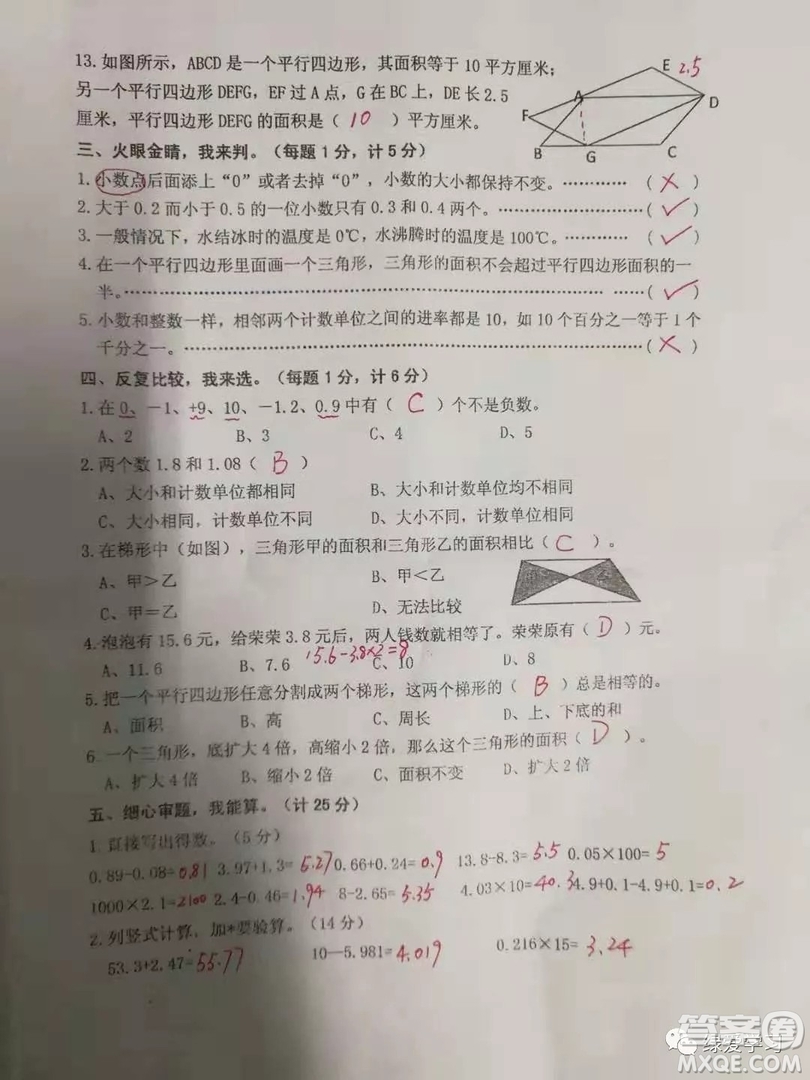 13. 如图所示，ABCD 是一个平行四边形，其面积等于 10 平方厘米；
另一个平行四边形 DEFG，EF 过 A 点，G 在 BC 上，DE 长 2.5
厘米，平行四边形 DEFG 的面积是（ 10 ）平方厘米。
E 2.5
A
D
F
B
G
C
三、火眼金睛，我来判。（每题 1 分，计 5 分）
1. 小数点后面添上“0”或者去掉“0”，小数的大小都保持不变。…………（ × ）
2. 大于 0.2 而小于 0.5 的一位小数只有 0.3 和 0.4 两个。……………………（ ✓ ）
3. 一般情况下，水结冰时的温度是 0℃，水沸腾时的温度是 100℃。…………（ ✓ ）
4. 在一个平行四边形里面画一个三角形，三角形的面积不会超过平行四边形面积的一
半。………………………………………………………………………………（ ✓ ）
5. 小数和整数一样，相邻两个计数单位之间的进率都是 10，如 10 个百分之一等于 1 个
千分之一。………………………………………………………………………（ × ）
四、反复比较，我来选。（每题 1 分，计 6 分）
1. 在 0、－1、+9、10、－1.2、0.9 中有（ C ）个不是负数。
A、2 B、3 C、4 D、5
2. 两个数 1.8 和 1.08（ B ）
A、大小和计数单位都相同 B、大小和计数单位均不相同
C、大小相同，计数单位不同 D、大小不同，计数单位相同
3. 在梯形中（如图），三角形甲的面积和三角形乙的面积相比（ C ）。
A、甲＞乙 B、甲＜乙
C、甲＝乙 D、无法比较
4. 泡泡有 15.6 元，给荣荣 3.8 元后，两人钱数就相等了。荣荣原有（ D ）元。
15.6-3.8×2=8
A、11.6 B、7.6 C、10 D、8
5. 把一个平行四边形任意分割成两个梯形，这两个梯形的（ B ）总是相等的。
A、面积 B、高 C、周长 D、上、下底的和
6. 一个三角形，底扩大 4 倍，高缩小 2 倍，那么这个三角形的面积（ D ）。
A、扩大 4 倍 B、缩小 2 倍 C、面积不变 D、扩大 2 倍
五、细心审题，我能算。（计 25 分）
1. 直接写出得数。（5 分）
0.89-0.08= 0.81 3.97+1.3= 5.27 0.66+0.24= 0.9 13.8-8.3= 5.5 0.05×100= 5
1000×2.1= 2100 2.4-0.46= 1.94 8-2.65= 5.35 4.03×10= 40.3 4.9+0.1-4.9+0.1= 0.2
2. 列竖式计算，加*要验算。（14 分）
53.3+2.47= 55.77 10—5.981= 4.019 0.216×15= 3.24
答案圈
绿爱学习
MXQE.COM